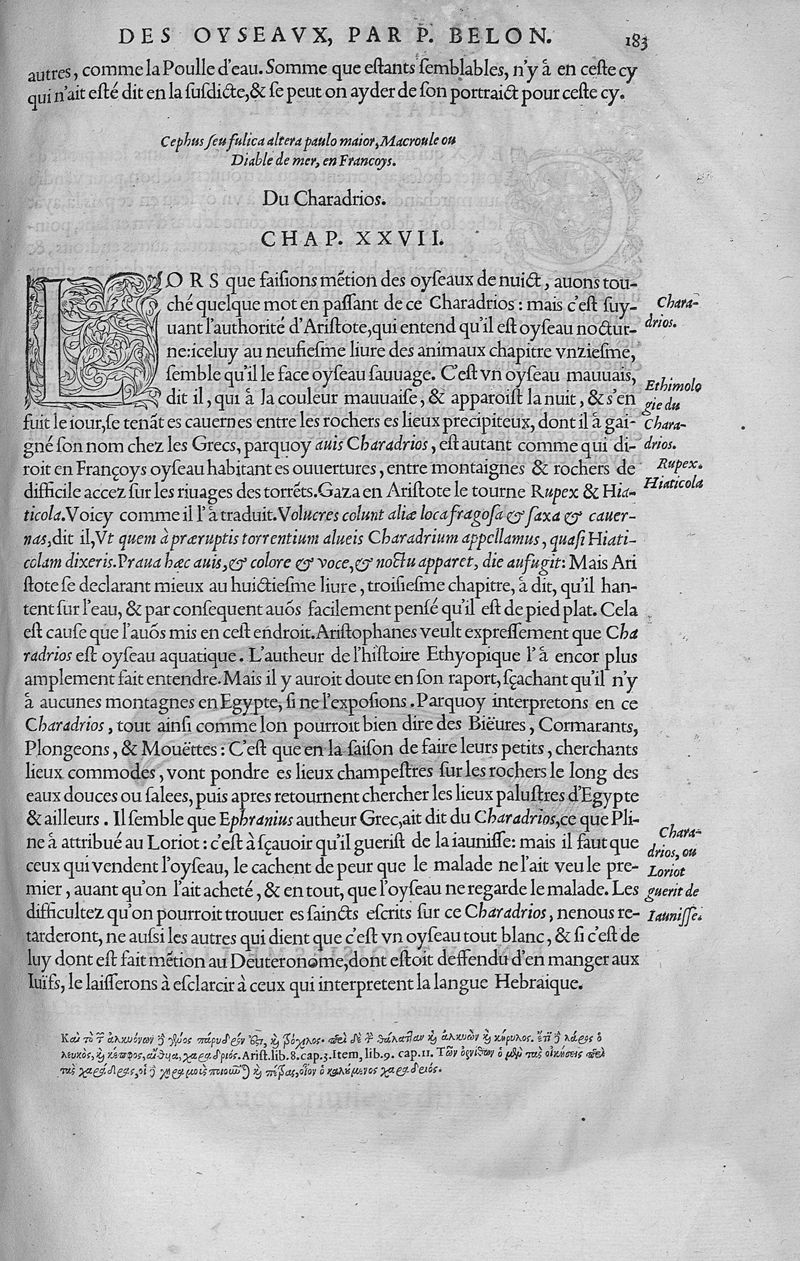 DES OYSEAVX, PAR P. BELON. 183
autres, comme la Poulle d'eau. Somme que eſtants ſemblables, n'y à en ceſte cy
qui n'ait eſté dit en la ſuſdicte, & ſe peut on ayder de ſon portraict pour ceſte cy.
Cephus ſeu fulica altera paulo maior, Macroule ou
Diable de mer, en Francoys.
Du Charadrios.
CHAP. XXVII.
LORS que faiſions métion des oyſeaux de nuict, avons tou-
ché quelque mot en paſſant de ce Charadrios: mais c'eſt ſuy-
uant l'authorité d'Ariſtote, qui entend qu'il eſt oyſeau noctur-
ne: iceluy au neufieſme liure des animaux chapitre vnzieſme,
ſemble qu'il le face oyſeau ſauuage. C'eſt vn oyſeau mauuais,
dit il, qui à la couleur mauuaiſe, & apparoiſt la nuit, & s'en
fuit le iour, ſe tenãt es cauernes entre les rochers es lieux precipiteux, dont il à gai-
gné ſon nom chez les Grecs, parquoy auis Charadrios, eſt autant comme qui di-
roit en Françoys oyſeau habitant es ouuertures, entre montaignes & rochers de
difficile accez ſur les riuages des torrẽts. Gaza en Ariſtote le tourne Rupex & Hia-
ticola. Voicy comme il l'à traduit. Volucres colunt aliæ loca fragoſa & ſaxa & cauer-
nas, dit il, Vt quem à præruptis torrentium alueis Charadrium appellamus, quaſi Hiati-
colam dixeris. Praua hæc auis, & colore & voce, & noctu apparet, die aufugit: Mais Ari
ſtote ſe declarant mieux au huictieſme liure, troiſieſme chapitre, à dit, qu'il han-
tent ſur l'eau, & par conſequent auõs facilement penſé qu'il eſt de pied plat. Cela
eſt cauſe que l'auõs mis en ceſt endroit. Ariſtophanes veult expreſſement que Cha
radrios eſt oyſeau aquatique. L'autheur de l'hiſtoire Ethyopique l'à encor plus
amplement fait entendre. Mais il y auroit doute en ſon raport, ſçachant qu'il n'y
à aucunes montagnes en Egypte, ſi ne l'expoſions. Parquoy interpretons en ce
Charadrios, tout ainſi comme lon pourroit bien dire des Biëures, Cormarants,
Plongeons, & Mouëttes: C'eſt que en la ſaiſon de faire leurs petits, cherchants
lieux commodes, vont pondre es lieux champeſtres ſur les rochers le long des
eaux douces ou ſalees, puis apres retournent chercher les lieux paluſtres d'Egypte
& ailleurs. Il ſemble que Ephranius autheur Grec, ait dit du Charadrios, ce que Pli-
ne à attribué au Loriot: c'eſt à ſçauoir qu'il gueriſt de la iauniſſe: mais il faut que
ceux qui vendent l'oyſeau, le cachent de peur que le malade ne l'ait veu le pre-
mier, auant qu'on l'ait acheté, & en tout, que l'oyſeau ne regarde le malade. Les
difficultez qu'on pourroit trouuer es ſaincts eſcrits ſur ce Charadrios, ne nous re-
tarderont, ne auſsi les autres qui dient que c'eſt vn oyſeau tout blanc, & ſi c'eſt de
luy dont eſt fait métion au Deuteronome, dont eſtoit deffendu d'en manger aux
Iuifs, le laiſſerons à eſclarcir à ceux qui interpretent la langue Hebraique.
Chara-
drios.
Ethimolo
gie du
Chara-
drios.
Rupex.
Hiaticola
Chara-
drios, ou
Loriot
guerit de
Iauniſſe.
Καὶ τὸ τ̃ ἀλκυόνων ὃ γένος πάρυδρόν ὅτι, καὶ τρόχιλος. περὶ δὲ τ̀ θάλατταν καὶ ἀλκυὼν καὶ κήρυλος. ἔτι ὃ λάρος ὁ
λευκὸς, καὶ κέπφος, αἴθυια, χαραδριός. Ariſt. lib. 8. cap. 3. Item, lib. 9. cap. 11. Τῶν ὀρνίθων ὁ μὲν τὰς οἰκήσεις περὶ
τὰς χαράδρας, οἱ ὃ χηραμοὺς ποιοῦν) καὶ πέτρας, οἷον ὁ καλούμενος χαραδριός.